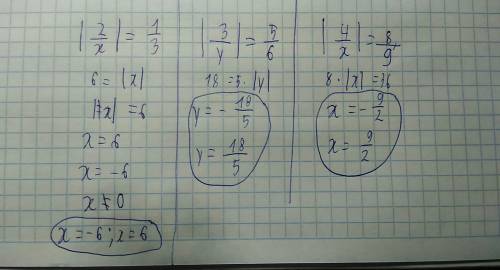 |2/x| = 1/3
6 = |x|
|x| = 6
x = 6
x = -6
x ≠ 0
x = -6; x = 6
|3/y| = 5/6
18 = 5 · |y|
y = - 18/5
y = 18/5
|4/x| = 8/9
8 · |x| = 36
x = - 9/2
x = 9/2